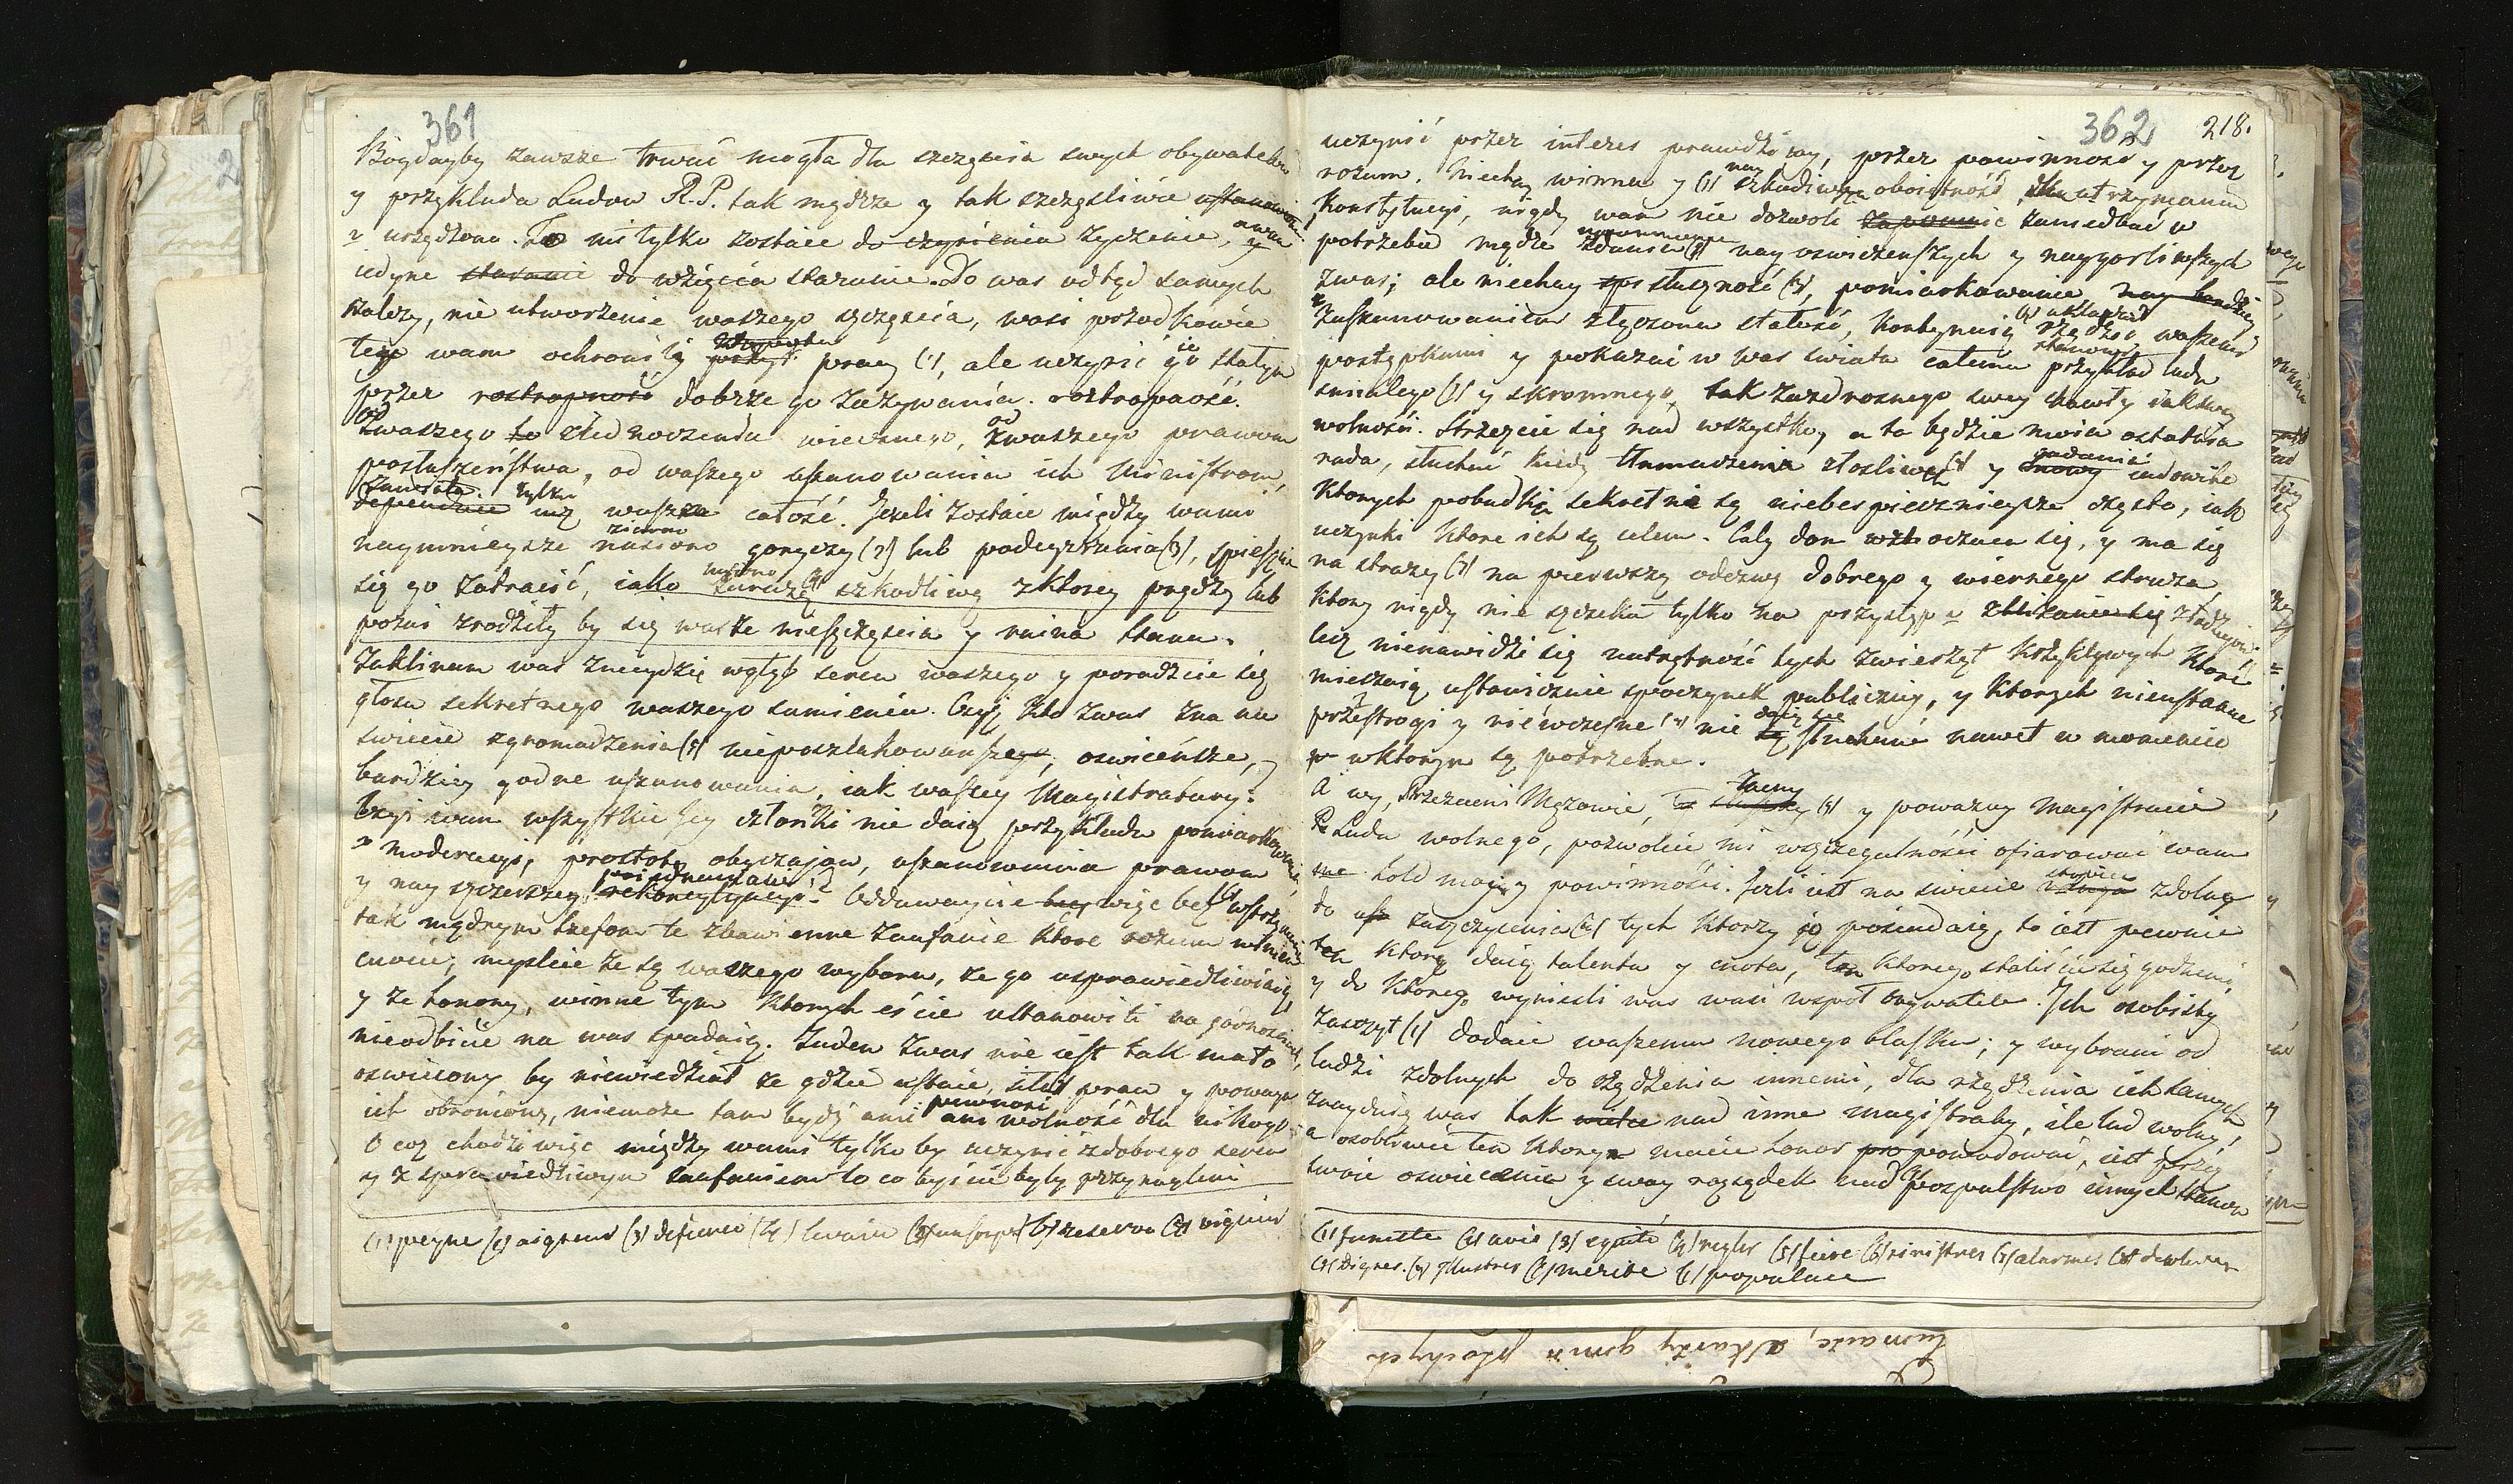 361
Bogdayby zawsze trwać mogła dla szczęścia swych obywatelow
y przykładu Ludow R.P. tak mądrze y tak szczęśliwie ustanowiona
y urządzona. To mi tylko zostaie do czynienia życzenie, a wam
iedyne staranie do wzięcia staranie. Do was odtąd samych
należy, nie utworzenie waszego szczęścia, wasi przodkowie
tey wam ochronili pracy (1), ale uczynić ie stałym
przez roztropność dobrze go zażywania. roztropność.
Od waszego to ziednoczenia wiecznego, od waszego prawom
posłuszeństwa, od waszego uszanowania ich Ministrom,
zawisła tylko wasza całość. Jeżeli zostaie między wami
naymnieysze nasiono ziarno goryczy (2) lub podeyrzenia (3), spieszcie
się go zatracić, iako zarazę szkodliwą z ktorey prędzy lub
pożni zrodziły by się wasze nieszczęścia y ruina stanu.
Zaklinam was znieydzie wgłąb serca waszego y poradzcie się
głosu sekretnego waszego sumienia. Czyż kto zwas zna na
swiecie zgromadzenia (5) nieposzlakowansze, oswieceńsze,
bardziey godne uszanowania, iak waszey Magistratury:
Czyż wam wszystkie iey członki nie daią przykładu pomiarkowania,
moderacyi, prostoty obyczaiow, uszanowania prawom
y nay szczerszey rekoncyliacyi? Oddawaycie więc bez wstrzymania
tak mądrym szefom te zbawienne zaufanie ktore rozum winien
cnocie; myslcie że są waszego wyboru, że go usprawiedliwiaią
y że honory, winne tym ktorych eście ustanowili na godnosciach,
nieodbicie na was spadaią. Żaden zwas nie iest tak mało
oswiecony by niewiedział że gdzie ustaie siła praw y powaga
ich obroniony, niemoże tam bydź ani pewnosci ani wolność dla nikogo.
O coż chodzi więc między wami tylko by uczynić z dobrego serca
y z sprawiedliwym zaufaniem to co byscie byli przynagleni
(1) peyne (2) aigreur (3) defiance (4) levain (5) un corps (6) reserve (7) vigueur
362 218.
uczynić przez interes prawdziwy, przez powinność y przez
rozum. Niechay winna y (1) nay szkodliwsza oboiętność dla utrzymania
Konstytucyi, nigdy wam nie dozwoli zapomnie zaniedbać w
potrzebie mądre zdania (2) nay oswieceńszych y naygorliwszych
zwas; ale niechay słuszność (3), pomiarkowanie nay bardziey
z uszanowaniem złączona stałość, kontynuią rządzić waszemi
postępkami y pokazać w was swiatu całemu przykład ludu
smiałego (5) y skromnego, tak zazdrosnego swey chwały iak swey
wolności. Strzeżcie się nad wszystko, a to będzie moia ostatnia
rada, słuchać kiedy tłumaczenia złosliwych y gadanie iadowite
ktorych pobudki sekretnie są niebespiecznieysze często, iak
uczynki ktore ich są celem. Cały dom oczuca się, y ma się
na straży (7) na pierwszy odezwę dobrego y wiernego stróża,
ktory nigdy nie szczeka tylko na przystęp zbliżanie się złodzieiow
lecz nienawidzi się natrętność tych zwierząt krzykliwych ktore
mieszaią ustawicznie spoczynek publiczny, y ktorych nieustanne
przestrogi y niewczesne nie daią się słuchane nawet w momencie
w ktorym są potrzebne.
A wy, Przezacni Mężowie, zacny (9) y poważny Magistracie
Ludu wolnego, pozwolcie mi w szczegulności ofiarować wam
hołd moiey powinności. Jeżli iest na swiecie stopień zdolny
do zaszczycenia tych ktorzy go posiadaią, to iest pewnie
ten ktory daią talenta y cnota, ten ktorego staliście się godnemi,
y do ktorego wyniesli was wasi współ obywatele. Ich osobisty
zaszczyt dodaie waszemu nowego blasku; y wybrani od
ludzi zdolnych do rządzenia innemi, dla rządzenia ich samych
znayduię was tak nad inne magistraty, ile lud wolny,
a osobliwie ten ktorym macie honor prowadować, iest przez
swoie oswiecenie y swoy rozsądek nad pospulstwo innych stanow
(1) funeste (2) avis (3) equité (4) regler (5) fiere (6) sinistres (7) alarmes
(8) Dignes. (9) Illustres merite populace